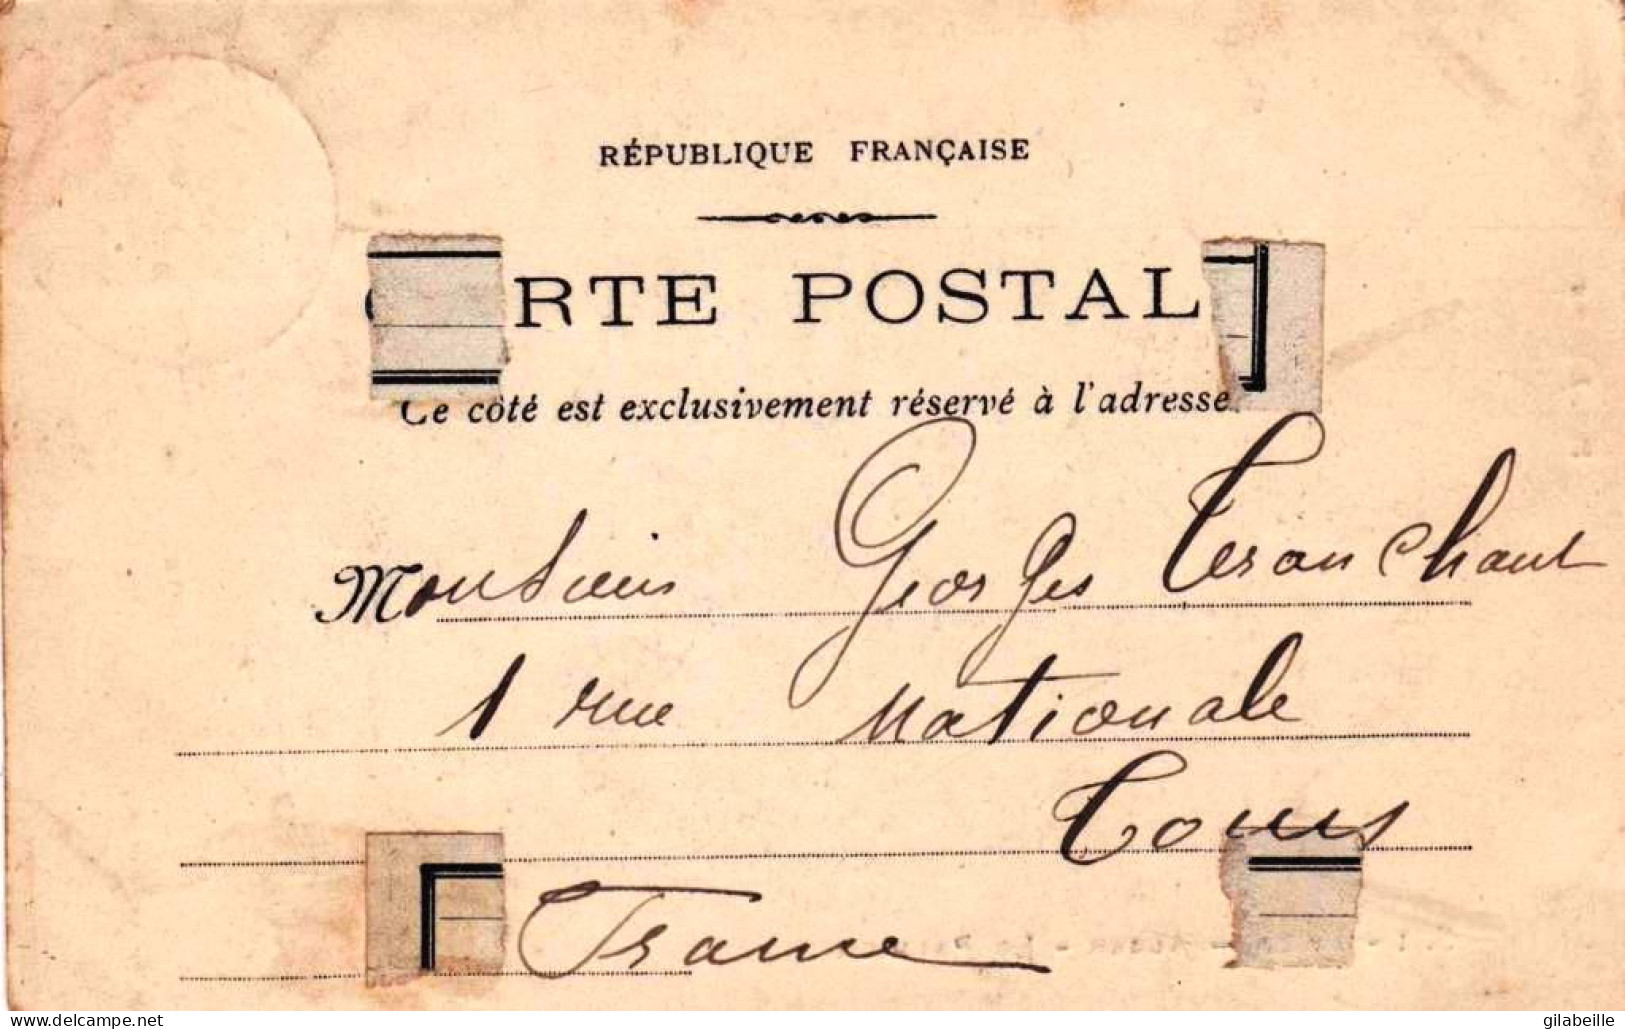 RÉPUBLIQUE FRANÇAISE
RTE POSTAL
Ce côté est exclusivement réservé à l'adresse.
Monsieur Georges Tranchant
1 rue Nationale
Tours
France
www.delcampe.net
gilabeille